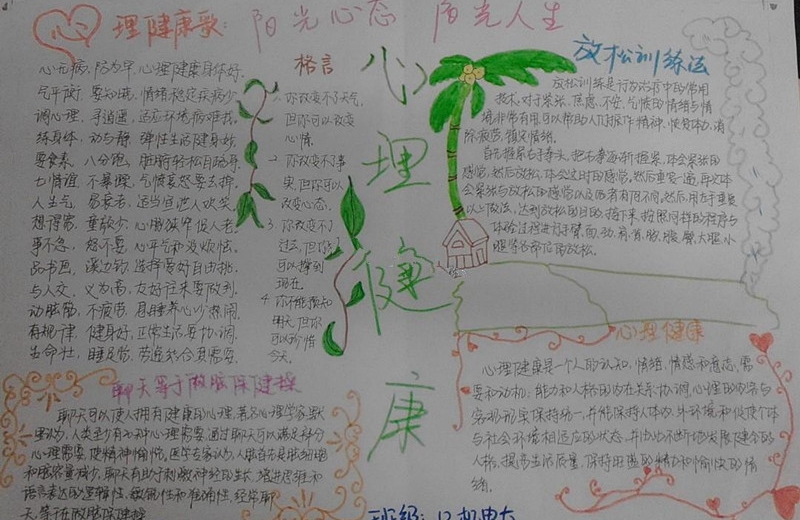 心理健康歌:
阳光心态 阳光人生
心无病,防为早,心理健康身体好,
气平衡,要知晓,情绪稳定疾病少,
调心理,寻逍遥,适应环境病难找,
练身体,动与静,弹性生活健身妙,
要食素,八分饱,脏腑轻松
七情谊,不暴躁,气愤哀怒要去掉,
人生气,易衰老,适当宣泄人欢笑,
想得宽,童龄少,心胸狭窄促人老,
事不急,怒不要,心平气和
品书画,溪边钓,选择爱好自由挑,
与人交,义为高,友好往来要做到,
动脑筋,不疲劳,息睡养心少热闹,
有规律,健身好,正常生活要协调,
生命壮,睡足觉,劳逸结合真需要
格言
1. 你改变不了天气,
但你可以改变
心情.
2. 你改变不了事
实,但你可以
改变心态.
3. 你改变不了
过去,但你
可以
现在.
4. 你不能预知
明天,但你
可以珍惜
今天.
心理健康
放松训练法
放松训练是行为治疗中的常用
技术.对于紧张、焦虑、不安、气愤的情绪与情
境非常有用,可以帮助人们振作精神,恢复体力,消
除疲劳,镇定情绪.
首先握紧右手拳头,把右拳逐渐握紧,体会紧张的
感觉,然后放松,体会这时的感觉,然后重复一遍,再次体
会紧张与放松的感觉以及两者有何不同,然后,用左手重复
以上做法,达到放松的目的.接下来,按照同样的程序与
体验过程进行手臂、面、颈、肩、背、胸、腹、臀、大腿、小
腿等各部位的放松.
聊天等于做脑保健操
聊天可以使人拥有健康的心理,著名心理学家默
里认为,人类至少有20种心理需要,通过聊天可以满足部分
心理需要,使精神愉悦,医学专家认为,人衰老首先是脑细胞
和脑容量减少,聊天有助于刺激神经的生长,增进思维和
语言表达的逻辑性、敏锐性和准确性,经常聊
天等于在做脑保健操
心理健康
心理健康是一个人的认知、情绪、情感和意志,需
要和动机;能力和人格的内在关系协调,心理的内容与
客观现实保持统一,并能保持人体内、外环境和促使个体
与社会环境相适应的状态,并由此不断地发展健全的
人格,提高生活质量,保持旺盛的精力和愉快的情
绪.
班级: 12机电大